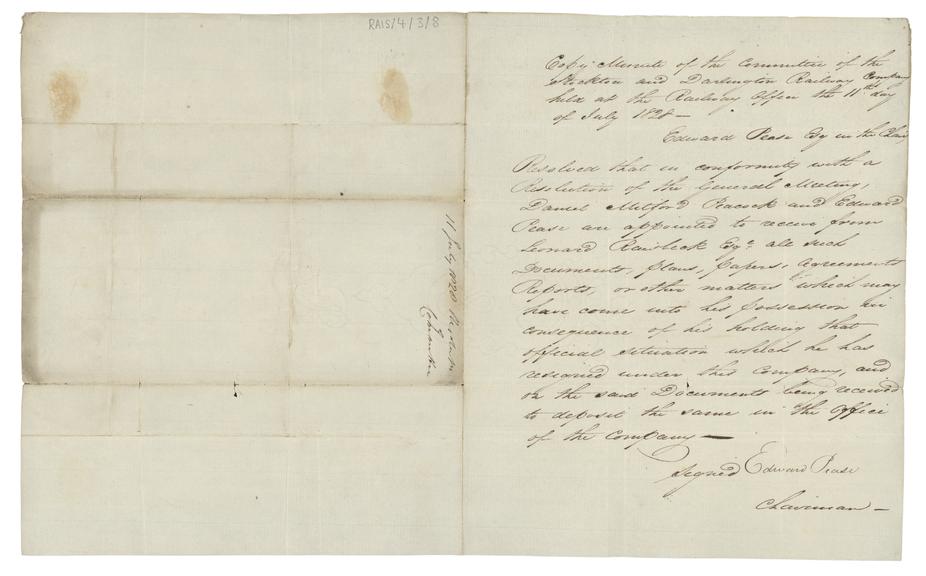 RAIS/4/3/8
Copy Minute of the Committee of the
Stockton and Darlington Railway Company
held at the Railway Office the 11th day
of July 1828 —
Edward Pease Esq in the Chair
Resolved that in conformity with a
Resolution of the General Meeting,
Daniel Mitford Peacock and Edward
Pease are appointed to receive from
Leonard Raisbeck Esqr. all such
Documents, plans, papers, Agreements
Reports, or other matters which may
have come into his possession in
consequence of his holding that
official situation which he has
resigned under this Company, and
on the said Documents being received
to deposit the same in the Office
of the Company —
Signed Edward Pease
Chairman —
11 July 1828